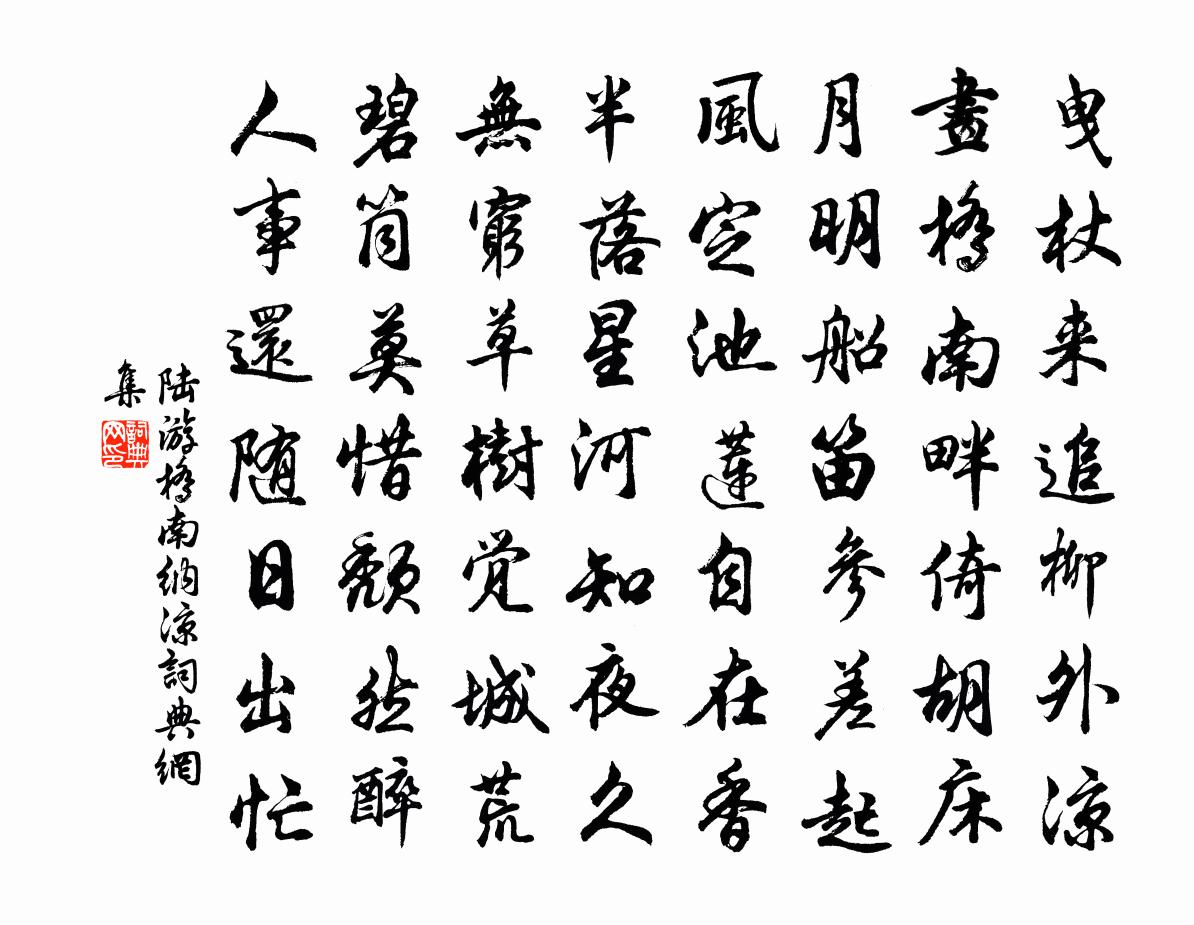 曳杖来追柳外凉
畫橋南畔倚胡床
月明船笛參差起
風定池蓮自在香
半落星河知夜久
無窮草樹覺城荒
碧筒莫惜頹然醉
人事還随日出忙
陆游橋南納凉詞典網
集
詞典
网印